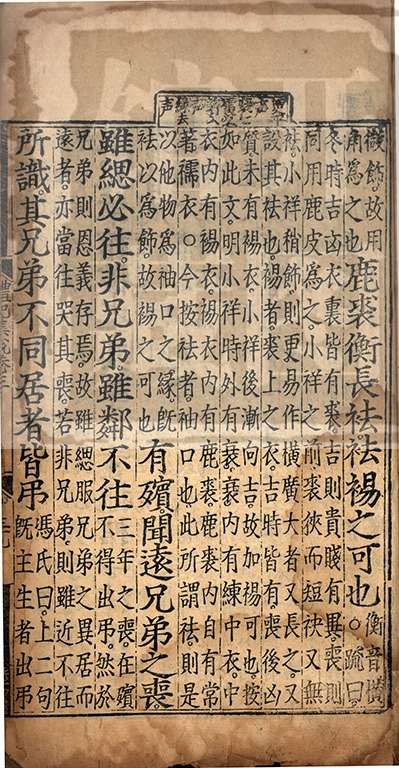 微飾。故用
角爲之也
鹿裘衡長袪。袪裼之可也
衡音橫
○疏曰。
冬時吉凶衣裏皆有裘。吉則貴賤有異。喪則
同用鹿皮爲之。小祥之前。裘狹而短袂。又無
袪。小祥稍飾。則更易作橫廣大者。又長之。又
設其袪也。裼者。裘上之衣。吉時皆有。喪後凶
質未有裼衣。小祥後漸向吉。故加裼可也。按
如此文。明小祥時外有衰。衰內有練中衣。中
衣內有裼衣。裼衣內有鹿裘。鹿裘內自有常
著襦衣。○今按袪者。袖口也。此所謂袪。則是
以他物爲袖口之緣。旣
袪以爲飾。故裼之可也
有殯。聞遠兄弟之喪。
雖緦必往。非兄弟。雖鄰不往
三年之喪。在殯
不得出弔。然於
兄弟則恩義存焉。故雖緦服兄弟之異居而
遠者。亦當往哭其喪。若非兄弟。則雖近不往
所識其兄弟不同居者皆弔
馮氏曰。上二句
旣主生者出弔